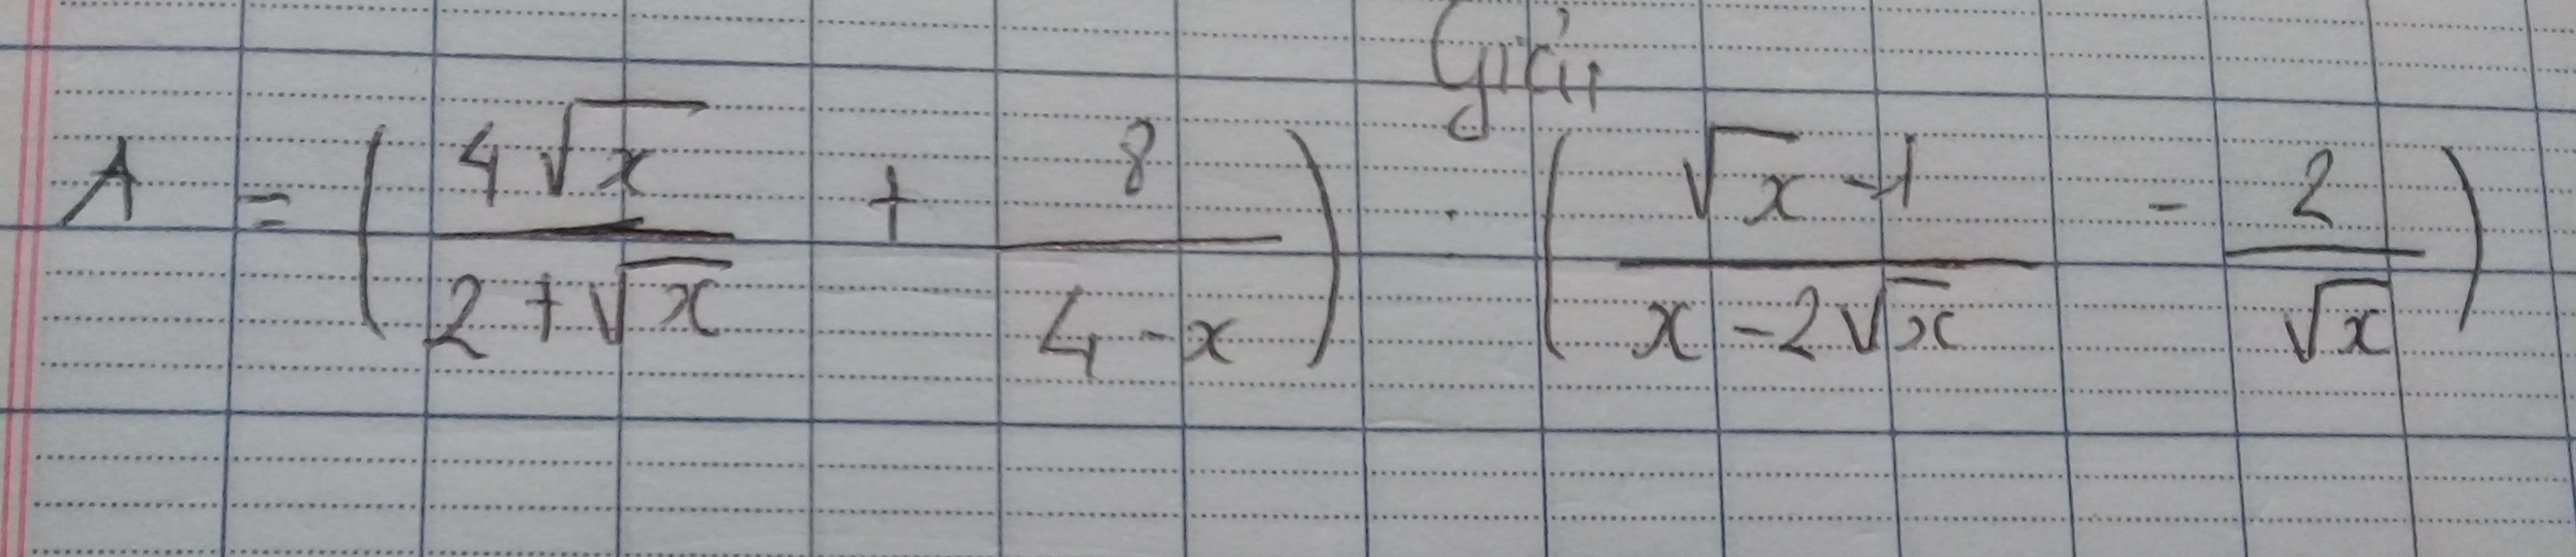 Giải
A = ( \frac{4\sqrt{x}}{2+\sqrt{x}} + \frac{8}{4-x} ) : ( \frac{\sqrt{x}-1}{x-2\sqrt{x}} - \frac{2}{\sqrt{x}} )